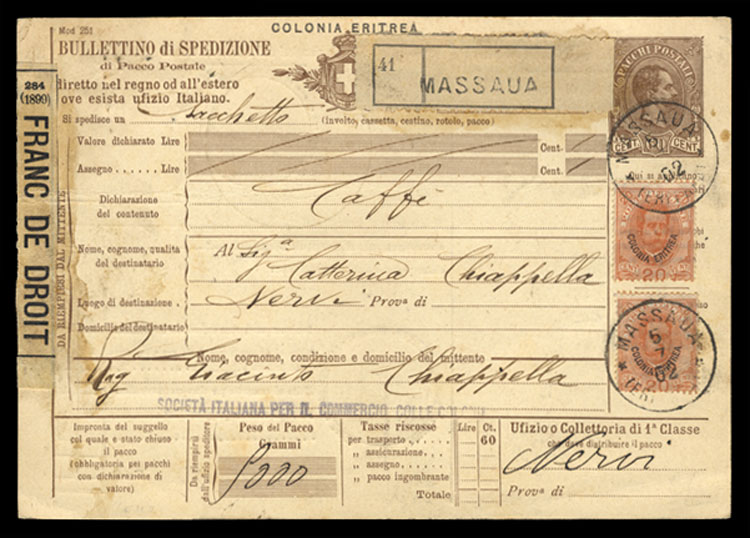 COLONIA ERITREA
Mod 251
BULLETTINO di SPEDIZIONE
di Pacco Postale
diretto nel regno od all'estero
ove esista ufizio Italiano.
41
MASSAUA
PACCHI POSTALI
284
(1899)
FRANC DE DROIT
Si spedisce un Sacchetto (involto, cassetta, cestino, rotolo, pacco)
Valore dichiarato Lire Cent.
Assegno . . . . . Lire Cent.
MASSAUA
02
Dichiarazione
del contenuto
Caffè
COLONIA ERITREA
20
DA RIEMPIERSI DAL MITTENTE
Nome, cognome, qualita
del destinatario
Al Sig.a Catterina Chiappella
Luogo di destinazione . Nervi Prov.a di
Domicilio del destinatario
MASSAUA
5
7
02
COLONIA ERITREA
20
Nome, cognome, condizione e domicilio del mittente
Rag Giacinto Chiappella
SOCIETÀ ITALIANA PER IL COMMERCIO COLLE COLONIE
Impronta del suggello
col quale e stato chiuso
il pacco
(obbligatoria pei pacchi
con dichiarazione di
valore)
Da riempirsi
dall'ufizio speditore
Peso del Pacco
Grammi
Tasse riscosse Lire Ct.
per trasporto . . . 60
„ assicurazione. .
„ assegno. . . .
„ pacco ingombrante
Totale
Ufizio o Collettoria di 1ª Classe
che deve distribuire il pacco
Nervi
Prov.a di